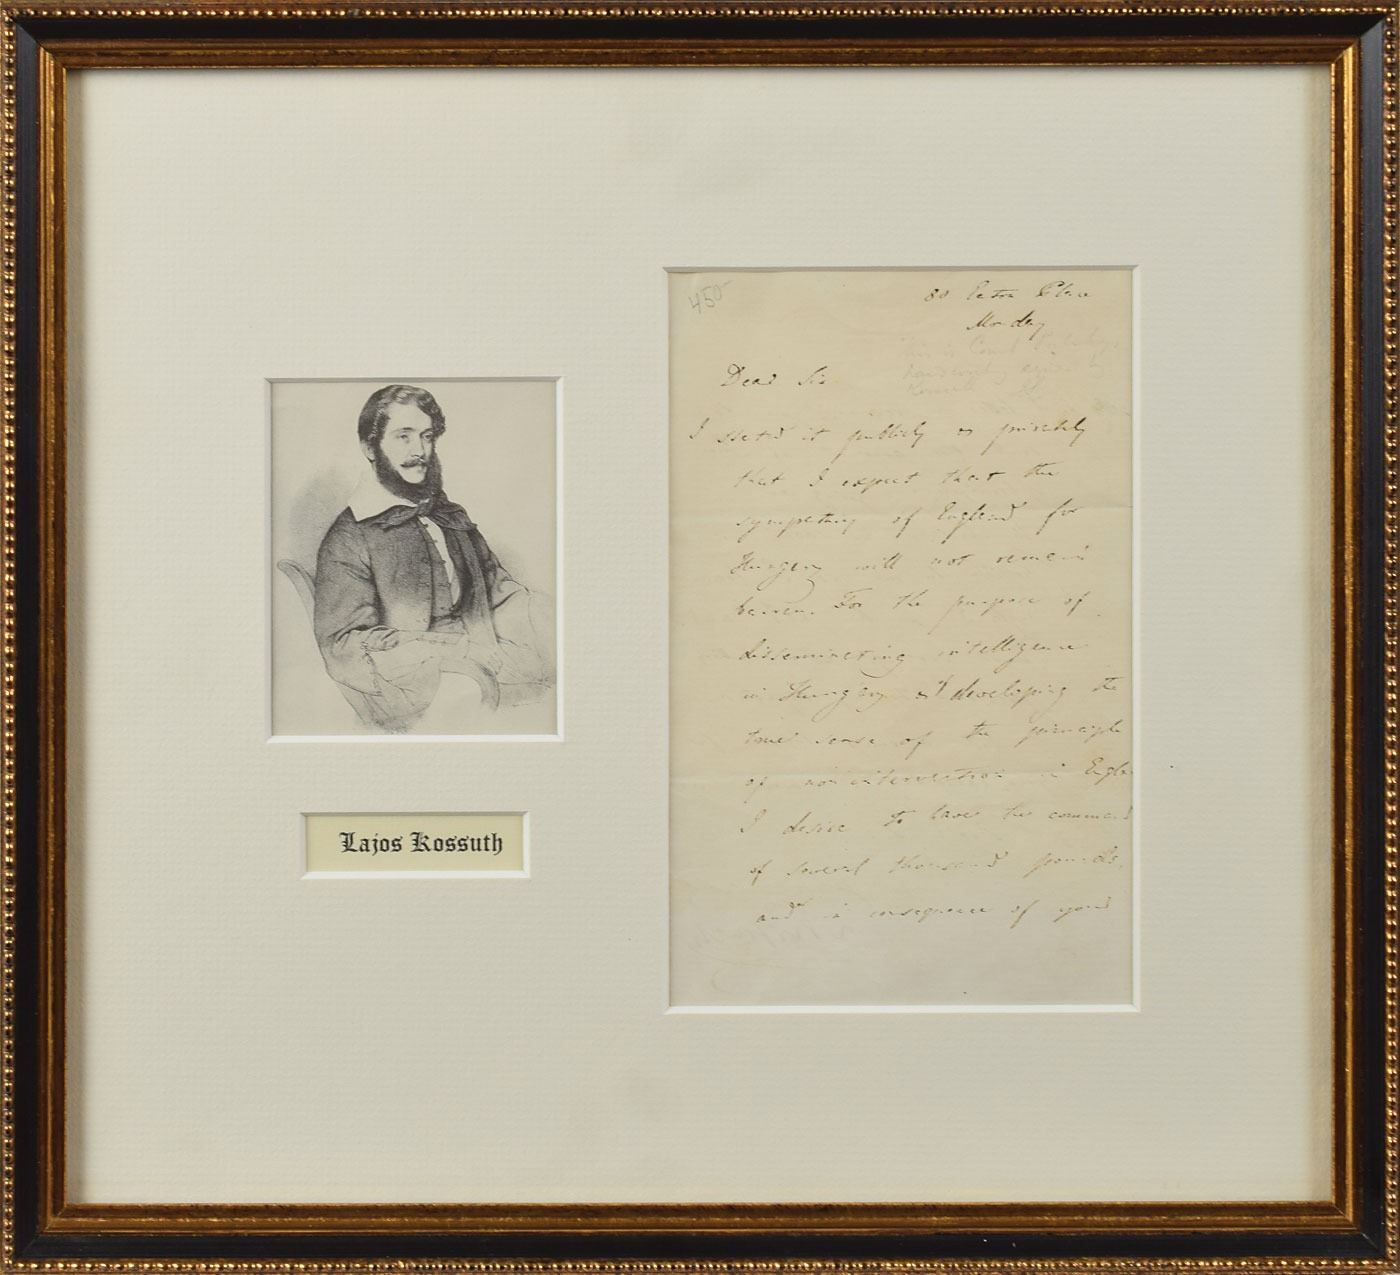 450-
80 Eaton Place
Monday
This is Count
Kossuth
Dear Sir
I stated it publicly & privately
that I expect that the
sympathy of England for
Hungary will not remain
barren. For the purpose of
disseminating intelligence
in Hungary & developing the
true sense of the principle
of non intervention in Engla
I desire to have the command
of several thousand pounds,
and in consequence of your
Lajos Kossuth